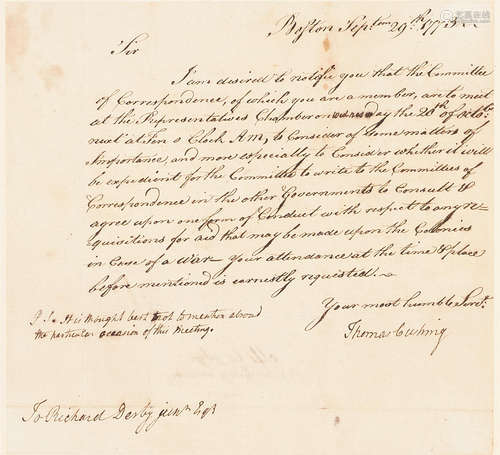 Boston Septem 29th 1773
Sir
I am desired to notify you that the Committee
of Correspondence, of which you are a member, are to meet
at the Representatives Chamber on wednesday the 20th of Octob:
next at Ten o Clock AM, to Consider of some matters of
Importance, and more especially to Consider whether it will
be expedient for the Committee to write to the Committees of
Correspondence in the other Governments to Consult &
agree upon one form of Conduct with respect to any re=
quisitions for aid that may be made upon the Colonies
in Case of a War— your attendance at the time & place
before mentioned is earnestly requisted.
Your most humble Servt.
Thomas Cushing
P.S. It is thought best not to mention abroad
the particular occasion of this meeting.
To Richard Derby junr Esqr